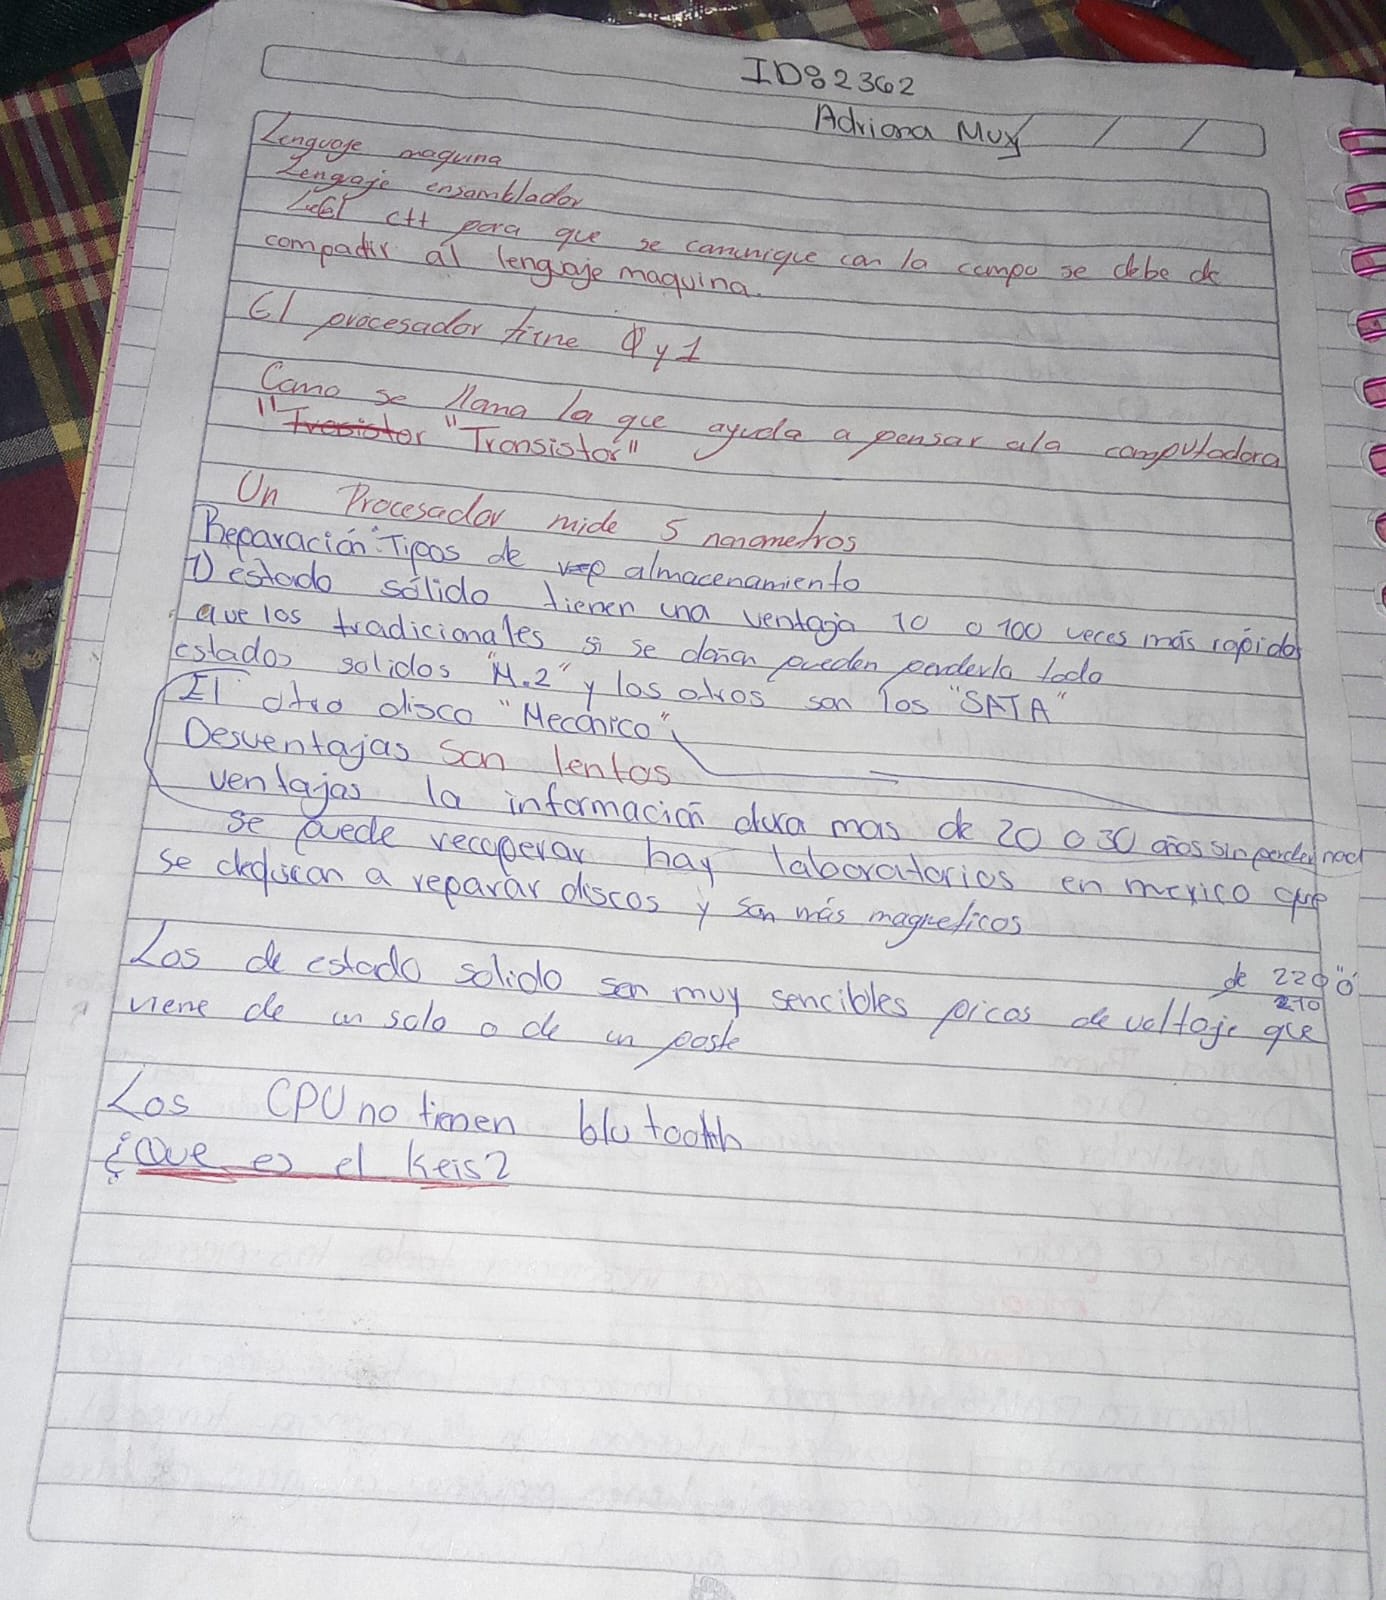 ID: 82362
Adriana Muy
Lenguaje maquina
Lengaje ensamblador
C++ para que se comunique con la compu se debe de
compadir al lenguaje maquina.
El procesador tiene 0 y 1
Como se llama la que ayuda a pensar ala computadora
"Tresistor "Transistor"
Un Procesador mide 5 nanometros
Reparación: Tipos de almacenamiento
1) estado sólido tienen una ventaja 10 o 100 veces más rapidos
que los tradicionales si se dañan pueden perderlo todo
estados solidos "M.2" y los otros son los "SATA"
El otro disco "Mecánico"
Desventajas son lentos
ventajas la información dura mas de 20 o 30 años sin perder nad
se puede recuperar hay laboratorios en mexico que
se dedican a reparar discos y son más magneticos
de 220 ó
Los de estado solido son muy sencibles picos de voltaje 210 que
viene de un solo o de un poste
Los CPU no tienen blu tooth
¿Que es el Keis?